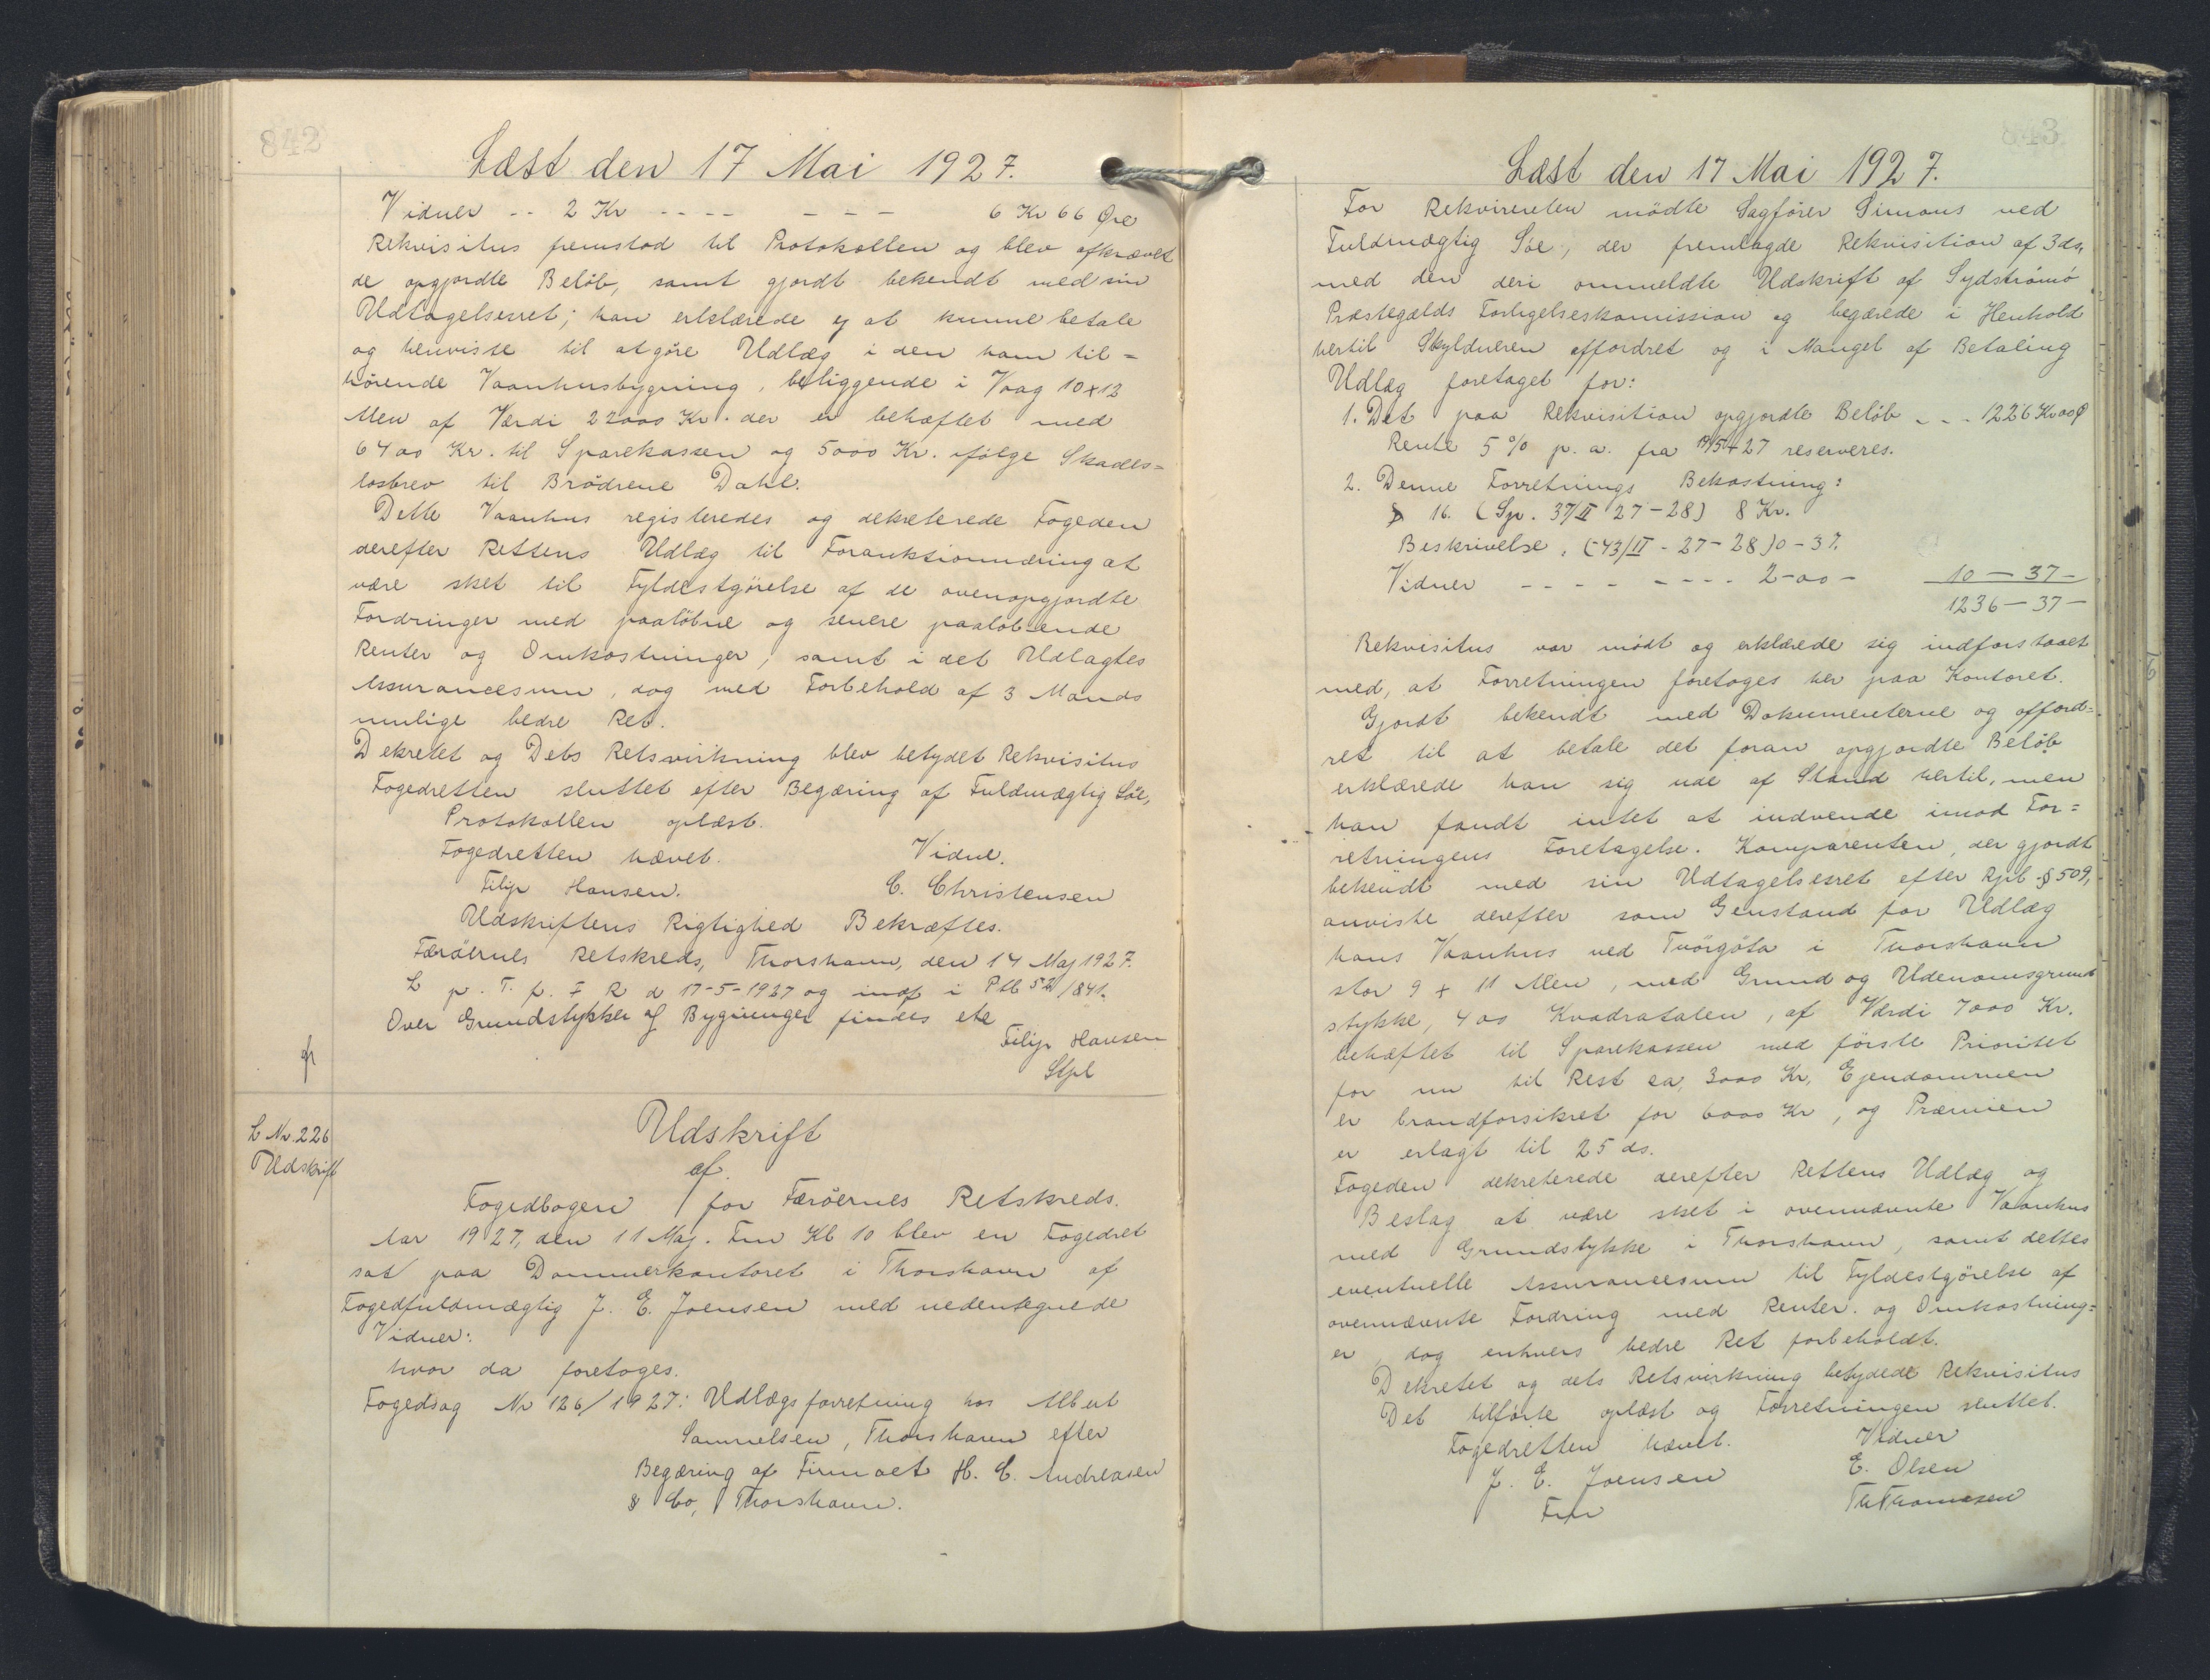 842
Læst den 17 Mai 1927.
Vidner -- 2 Kr ---- --- 6 Kr 66 Øre
Rekvisitus fremstod til Protokollen og blev afkrævet
de opgjordte Beløb, samt gjordt bekendt med sin
Udtagelsesret; han erklærede ej at kunne betale
og henviste til at gøre Udlæg i den ham til=
hørende Vaanhusbygning, beliggende i Vaag 10 x 12
Alen af Værdi 22000 Kr. der er behæftet med
6400 Kr. til Sparekassen og 5000 Kr. ifølge Skades=
løsbrev til Brødrene Dahl.
Dette Vaanhus registeredes og dekreterede Fogeden
derefter Rettens Udlæg til Foranktionnæring at
være sket til Fyldestgørelse af de ovenopgjordte
Fordringer med paaløbne og senere paaløbende
Renter og Omkostninger, samt i det Udlagtes
Assurancesum, dog med Forbehold af 3 Mands
mulige bedre Ret.
Dekretet og Dets Retsvirkning blev betydet Rekvisitus
Fogedretten sluttet efter Begæring af Fuldmægtig Søe,
Protokollen oplæst.
Fogedretten hævet. Vidne.
Filip Hansen. C. Christensen
Udskriftens Rigtighed Bekræftes.
Færøernes Retskreds, Thorshavn, den 14 Maj 1927.
L p. T. f. F R d 17-5-1927 og indf i Ptb 52/841.
Over Grundstykker af Bygninger findes ete
Filip Hansen
Stpl
L Nr. 226
Udskrift
Udskrift
af
Fogedbogen for Færøernes Retskreds.
Aar 1927, den 11 Maj. Fm Kl 10 blev en Fogedret
sat paa Dommerkontoret i Thorshavn af
Fogedfuldmægtig J. E. Joensen med nedentegnede
Vidner:
hvor da foretoges.
Fogedsag Nr 126/1927: Udlægsforretning hos Albert
Samuelsen, Thorshavn efter
Begæring af Firmaet H. C. Andreasen
& Co, Thorshavn.
843
Læst den 17 Mai 1927.
For Rekvirenten mødte Sagfører Simons ved
Fuldmægtig Søe, der fremlagde Rekvisition af 3 ds,
med den deri ommeldte Udskrift af Sydstrømø
Præstegælds Forligelseskomission og begærede i Henhold
hertil Skyldneren affordret og i Mangel af Betaling
Udlæg foretaget for:
1. Det paa Rekvisition opgjordte Beløb - - - 1226 Kr 00 Ø
Rente 5 % p. a. fra 17/5 27 reserveres.
2. Denne Forretnings Bekostning:
§ 16. (Sp. 37/II 27-28) 8 Kr.
Beskrivelse, (43/II - 27-28) 0-37.
Vidner - - - - - - - - 2-00 - 10 - 37 -
1236 - 37 -
Rekvisitus var mødt og erklærede sig indforstaaet
med, at Forretningen foretoges her paa Kontoret.
Gjordt bekendt med Dokumenterne og afford=
ret til at betale det foran opgjordte Beløb
erklærede han sig ude af Stand hertil, men
han fandt intet at indvende imod For=
retningens Foretagelse. Komparenten, der gjordt
bekendt med sin Udtagelsesret efter Rpl. § 509,
anviste derefter som Genstand for Udlæg
hans Vaanhus ved Tvørgøta i Thorshavn
stor 9 x 11 Alen, med Grund og Udenomsgrund
stykke, 400 Kvadratalen, af Værdi 7000 Kr.
behæftet til Sparekassen med første Prioritet
for nu til Rest ca, 3000 Kr, Ejendommen
er brandforsikret for 6000 Kr, og Præmien
er erlagt til 25 ds.
Fogeden dekreterede derefter Rettens Udlæg og
Beslag at være sket i ovennævnte Vaanhus
med Grundstykke i Thorshavn, samt dettes
eventuelle Assurancesum til Fyldestgørelse af
ovennævnte Fordring med Renter og Omkostning=
er, dog enhvers bedre Ret forbeholdt.
Dekretet og dets Retsvirkning betydede Rekvisitus
Det tilførte oplæst og Forretningen sluttet.
Fogedretten hævet. Vidner
J. E. Joensen E. Olsen
Fm Th Thomasen